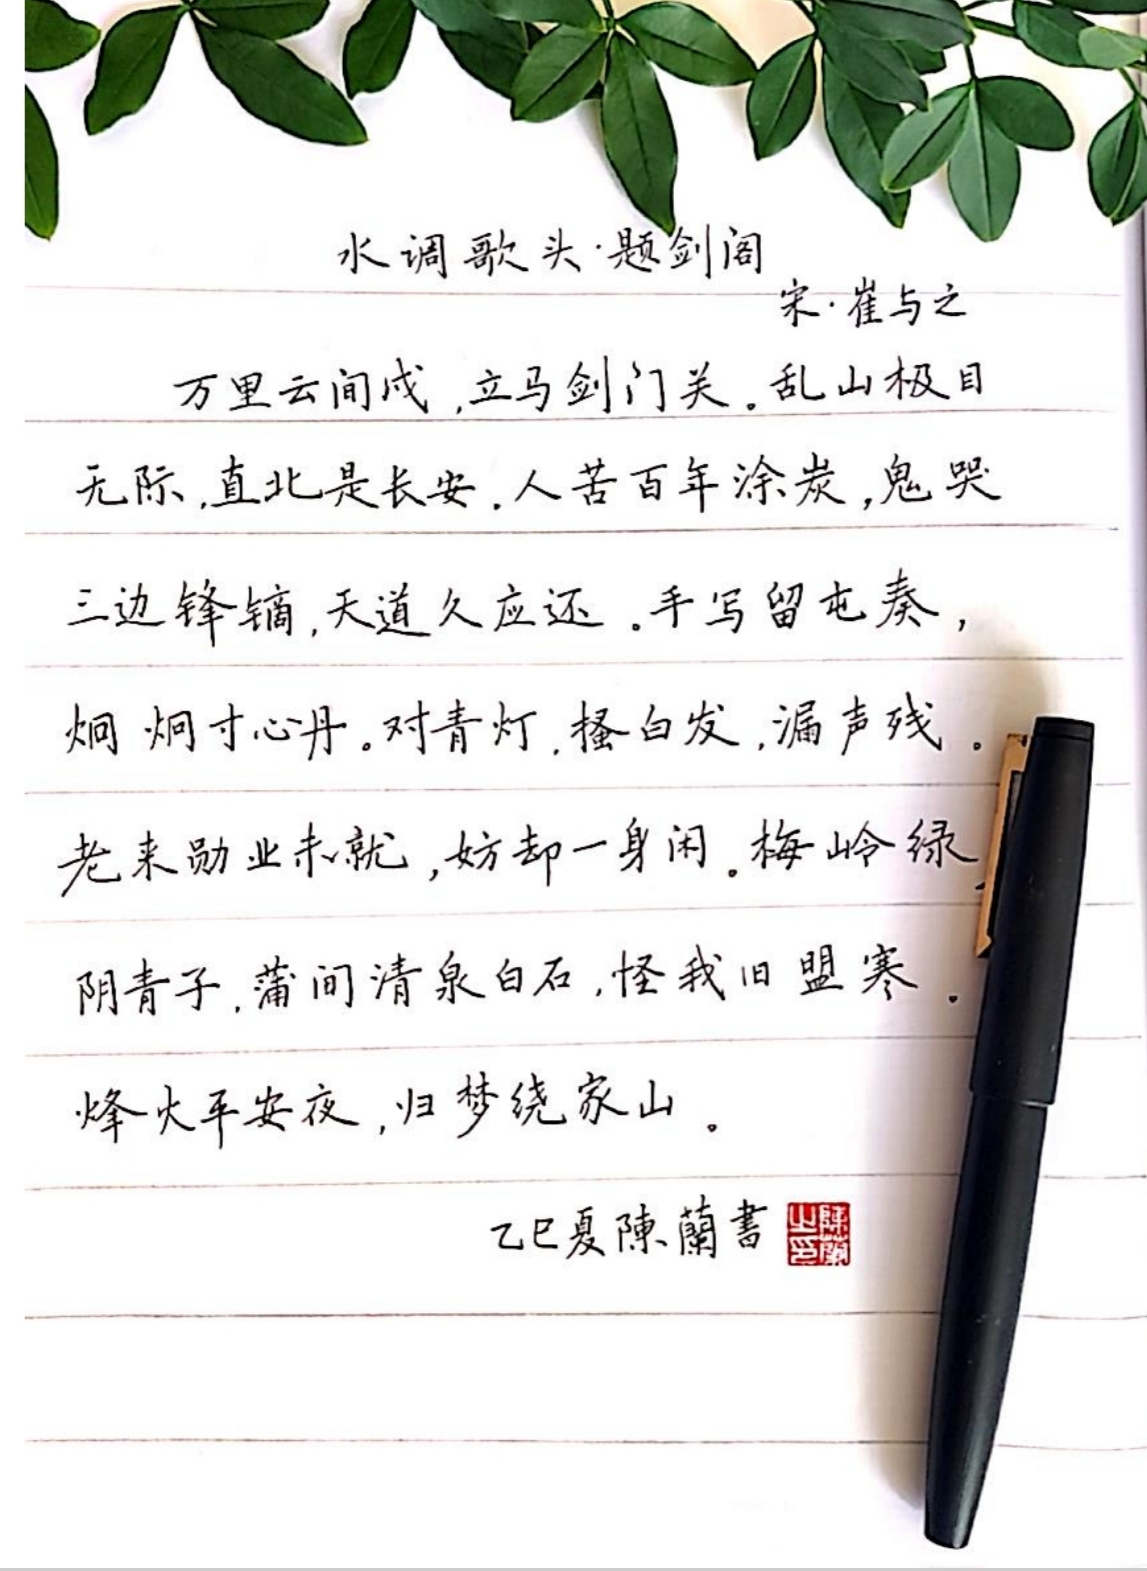 水调歌头·题剑阁
宋·崔与之
万里云间戍,立马剑门关。乱山极目
无际,直北是长安。人苦百年涂炭,鬼哭
三边锋镝,天道久应还。手写留屯奏,
炯炯寸心丹。对青灯,搔白发,漏声残。
老来勋业未就,妨却一身闲。梅岭绿
阴青子,蒲间清泉白石,怪我旧盟寒。
烽火平安夜,归梦绕家山。
乙巳夏陳蘭書
陳蘭之印